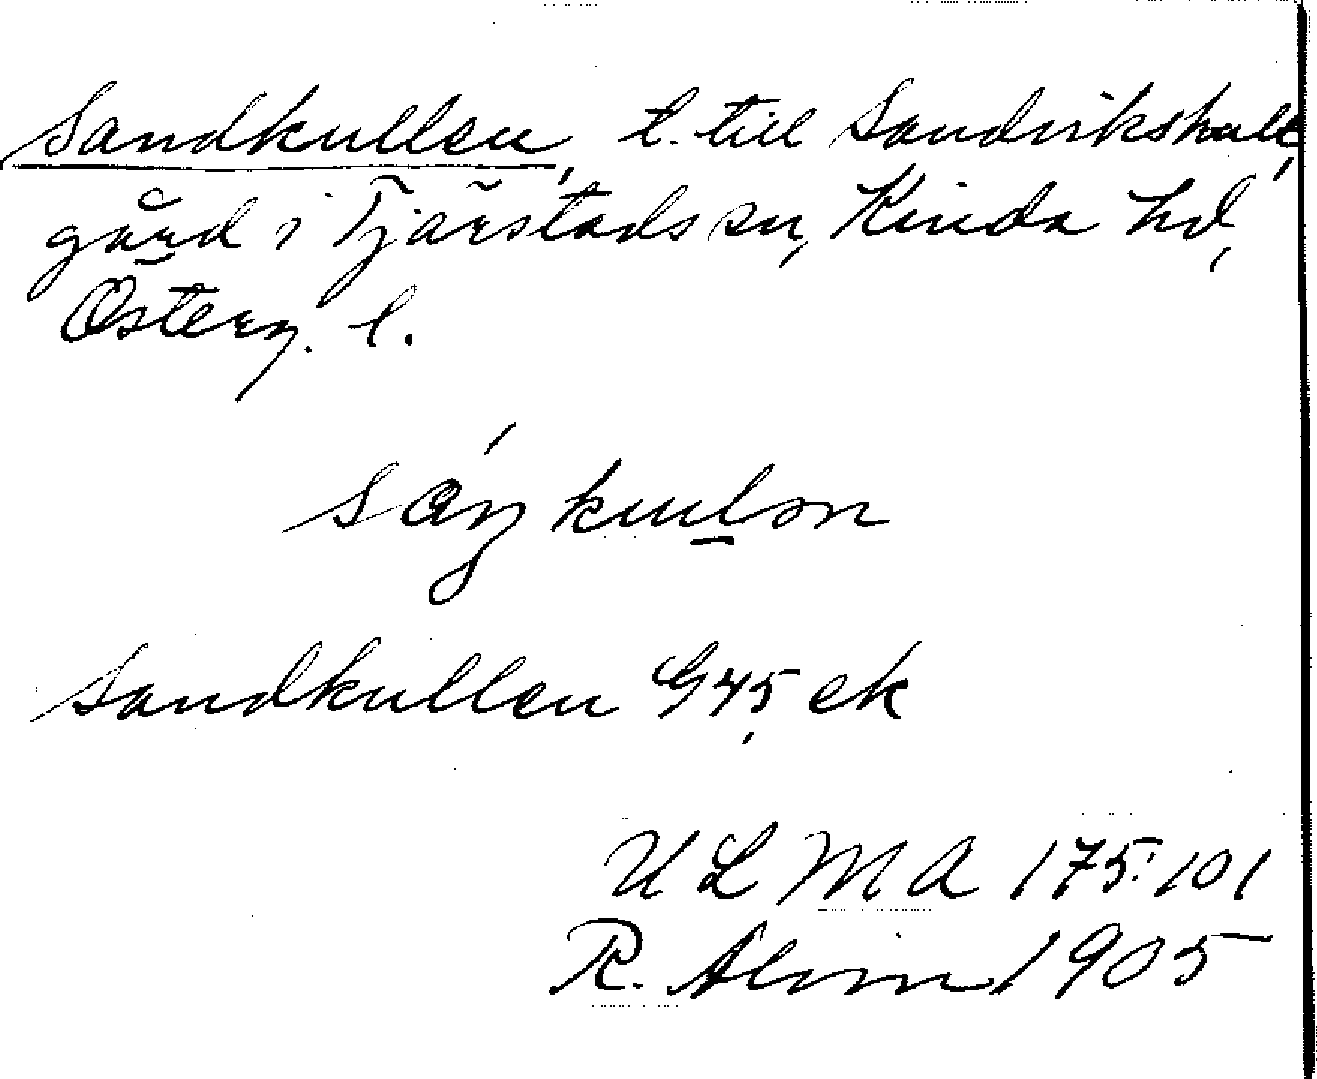 Sandkullen, t. till Sandvikshult,
gård i Tjärstads sn, Kinda hd,
Österg. l.
Sandkullen G45 ek
ULMA 175:101
R. Alvin 1905